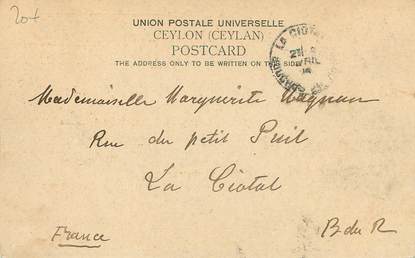 20f
UNION POSTALE UNIVERSELLE
CEYLON (CEYLAN)
POSTCARD
THE ADDRESS ONLY TO BE WRITTEN ON THIS SIDE
LA CIOTAT
Mademoiselle Marguerite Magnan
Rue du petit Puit
La Ciotat
France B du R